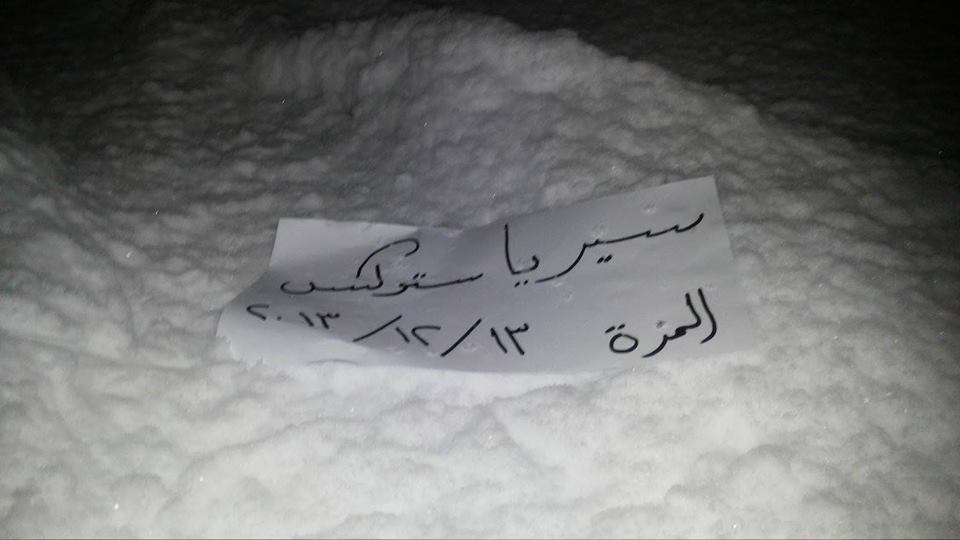 سيريا ستوكس
المزة ١٣/١٢/٢٠١٣